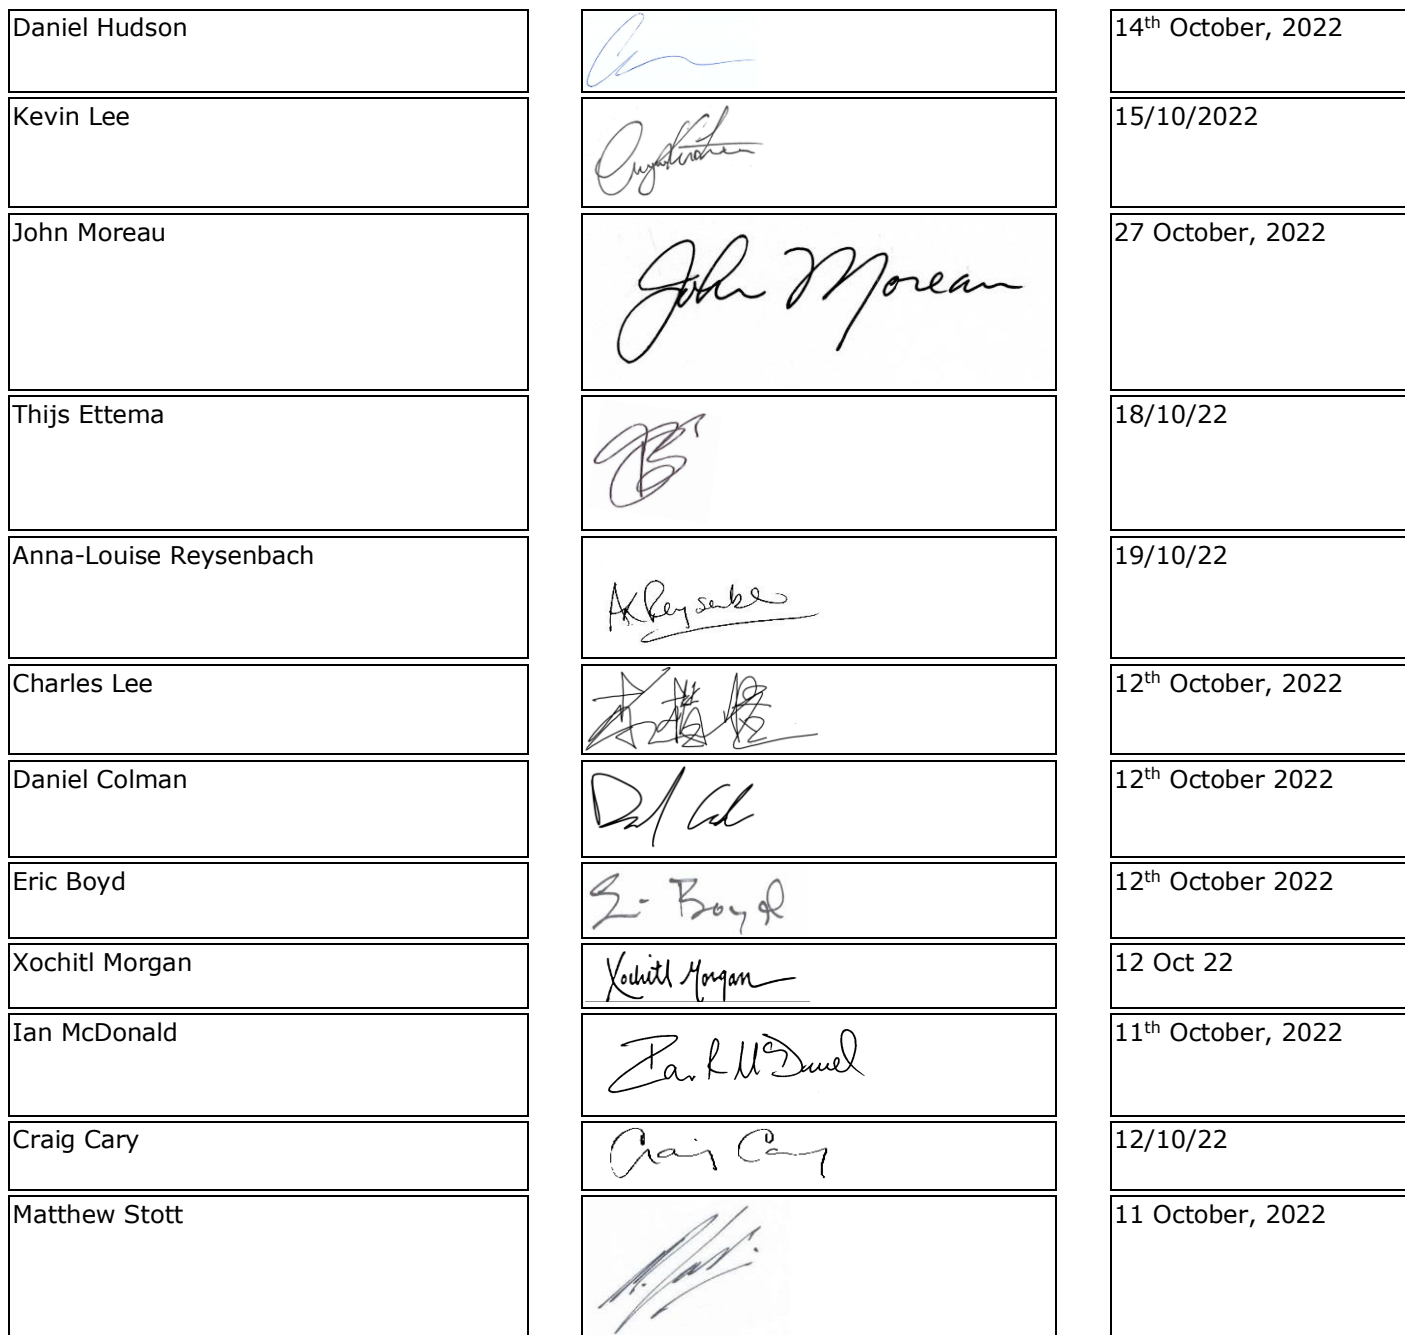 Daniel Hudson
14th October, 2022
Kevin Lee
15/10/2022
John Moreau
John Moreau
27 October, 2022
Thijs Ettema
18/10/22
Anna-Louise Reysenbach
19/10/22
Charles Lee
12th October, 2022
Daniel Colman
12th October 2022
Eric Boyd
Boyd
12th October 2022
Xochitl Morgan
Xochitl Morgan
12 Oct 22
Ian McDonald
11th October, 2022
Craig Cary
Craig Cary
12/10/22
Matthew Stott
11 October, 2022